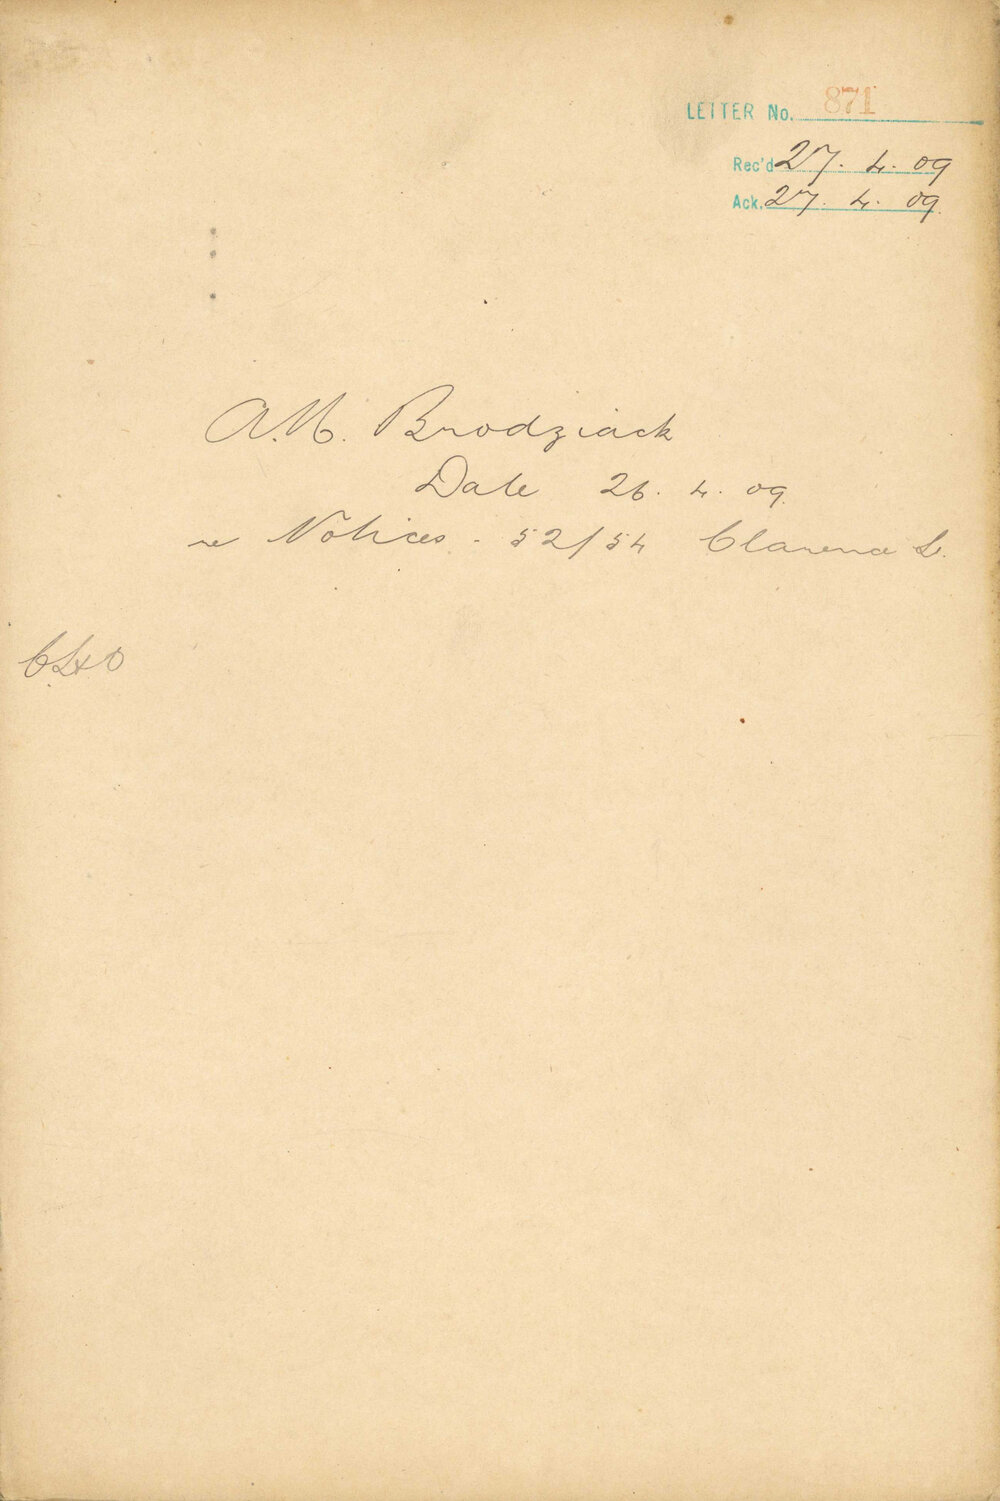 LETTER No. 871
Rec'd 27. 4. 09
Ack. 27. 4. 09.
A.M. Brodziack
Date 26. 4. 09.
re Notices - 52/54 Clarence St.